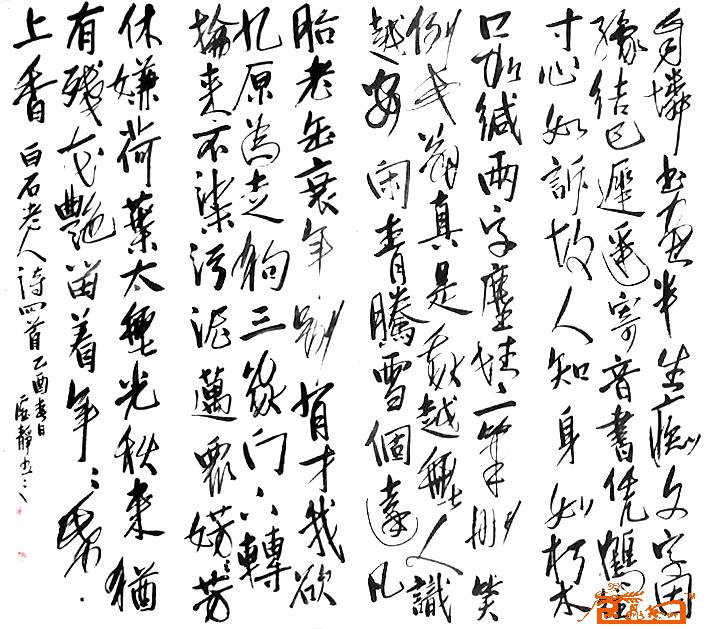 自憐書畫半生癡文字因
緣結已遲遙寄音書凭鶴
寸心如訴故人知身如朽木
口加緘兩字塵情一筆刪笑
倒 翁真是 越無人識
越安閑青藤雪個遠凡
胎老缶衰年別有才我欲
九原為走狗三家門下轉
輪來不染污泥邁眾芳
休嫌荷葉太無光秋來猶
有殘花艷留着年年
上香白石老人詩四首乙酉春日